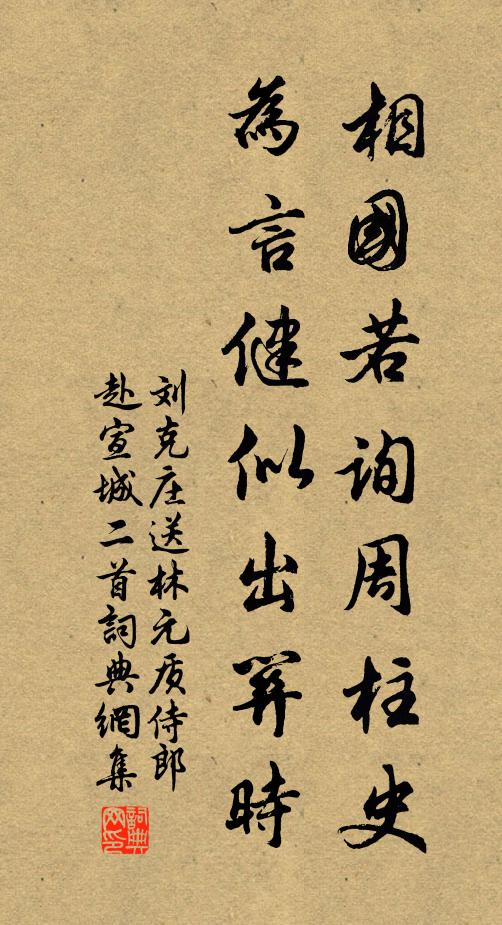 相國若詢周柱史
為言健似出關時
刘克庄送林元质侍郎
赴宣城二首詞典網集
詞典网印